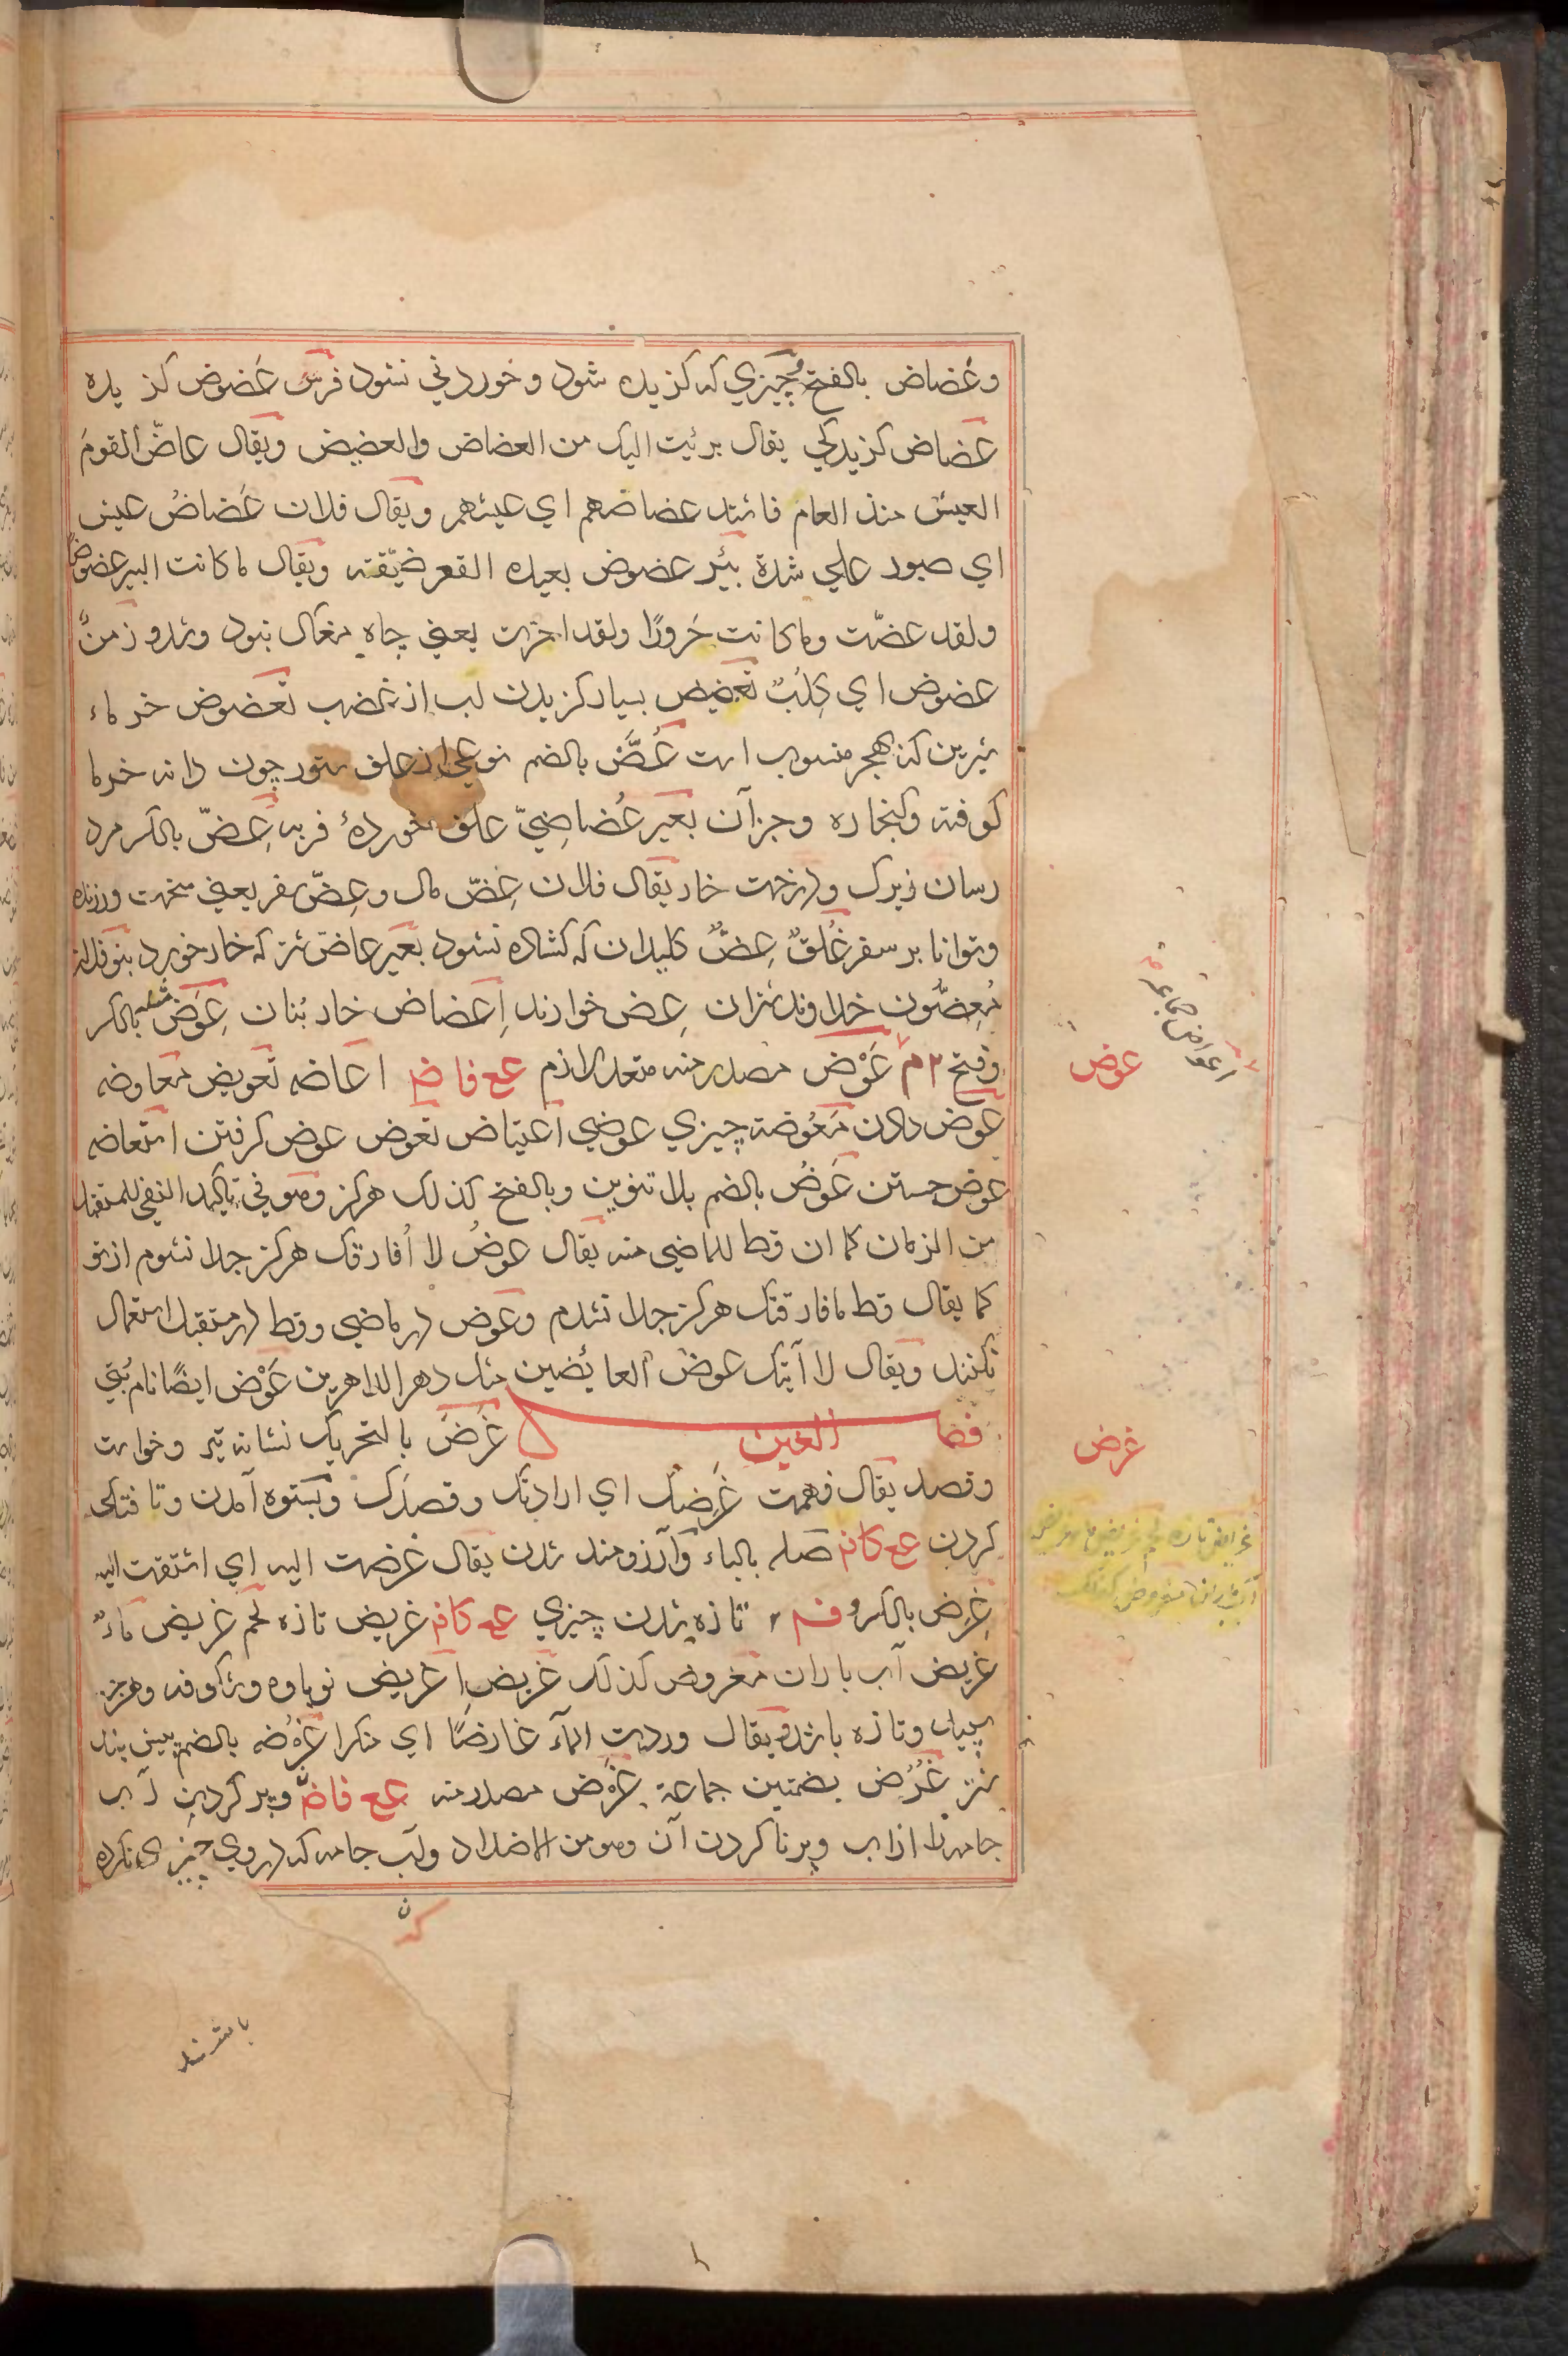 وعضاض بالفتح چيزي كه كزيده شود و خوردني نشود فرس عضوض كز يده
عضاض كزيدكي يقال برئيت اليك من العضاض والعضيض ويقال عاضّ القومَ
العيش منذ العام فاشتد عضاضهم اي عيشهم ويقال فلان عَضاضُ عيش
اي صبور علي شدة بئر عضوض بعيده القعر ضيّقته ويقال ما كانت البير عضوضًا
ولقد عضّت وما كانت جَرورًا ولقد اجرت يعني چاه مغاك نبود وشد و زمنٌ
عضوض اي كِلبٌ تعضيض بسيار كزيدن لب از غضب تعضوض خرماء
شيرين كه بهجر منسوب است عُضّ بالضم نوعي از علف ستور چون دانه خرما
كوفته وكنجاره وجز آن بعير عُضاضِيّ علف خوردهٔ فربه عِضّ بالكسر مرد
رسان زيرك ودرخت خار يقال فلان عِضّ مال وعِضّ سفر يعني سخت ورزنده
وتوانا بر سفر غَلقٌ عِضٌّ كليدان كه كشاده نشود بعير عاضّ شتر كه خار خورد بنو فلان
مُعِضّون خداوند شتران عِض خوارند اِعضاض خار بُنان عِوَض بالكسر
وفتح ٢ م عَوْض مصدر منه متعد لازم عع فاض اعاضه تعويض معاوضه
عوض دادن مَعُوضة چيزي عوضي اعتياض تعوض عوض كرفتن استعاضه
عوض جستن عَوضُ بالضم بلا تنوين وبالفتح كذلك هركز وهو في تاكيد النفي للمستقبل
من الزمان كما ان قط للماضي منه يقال عوضُ لا اُفارقك هركز جدا نشوم از تو
كما يقال قط ما فارقتك هركز جدا نشدم وعوض در ماضي وقط در مستقبل استعمال
نكنند ويقال لا آتيك عوضَ العايضين مثل دهر الداهرين عَوْض ايضًا نام بُتي
فصل الغين غَرَض بالتحريك نشانه تير وخواست
وقصد يقال فهمت غَرَضَك اي ارادتك وقصدك وبستوه آمدن وتافتكي
كردن عع كاف صله بالباء وآرزومند شدن يقال غرضت اليه اي اشتقت اليه
غِرَض بالكسر وفتح ٢ تازه شدن چيزي عع كاف غريض تازه لحم غريض ماءٌ
غريض آب باران مغروض كذلك غريض اغريض نوباوه وشكوفه وهرچه
سپيد وتازه باشد ويقال وردت الماء غارضًا اي مبكرا غُرْضه بالضم پيش بند
شتر غُرُض بضمتين جماعة غَرْض مصدر منه عع فاض وپر كردن آب
جامه را از آب وپر ناكردن آن وهو من الاضداد وآب جامه كه در وي چيزي نكرده
باشند
عوض
اعواض جماعة
غرض